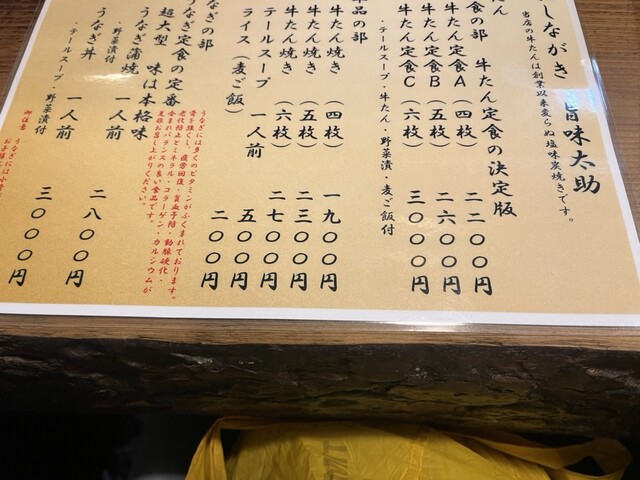 しながき 旨味太助
当店の牛たんは創業以来変らぬ塩味炭焼きです。
たん
食の部 牛たん定食の決定版
牛たん定食A (四枚) 二二〇〇円
牛たん定食B (五枚) 二六〇〇円
牛たん定食C (六枚) 三〇〇〇円
・テールスープ・牛たん・野菜漬・麦ご飯付
単品の部
牛たん焼き (四枚) 一九〇〇円
牛たん焼き (五枚) 二三〇〇円
牛たん焼き (六枚) 二七〇〇円
テールスープ 一人前 五〇〇円
ライス(麦ご飯) 二〇〇円
うなぎの部
うなぎには多くのビタミンがふくまれております。
骨を強くし、疲労回復・貧血予防・動脈硬化・
老化防止とミネラル・コラーゲン・カルシウムが
含まれバランスの良い食品です。
是非お召し上がりください。
うなぎ定食の定番
超大型 味は本格味
うなぎ蒲焼 一人前 二八〇〇円
・野菜漬付
うなぎ丼 一人前 三〇〇〇円
・テールスープ・野菜漬付